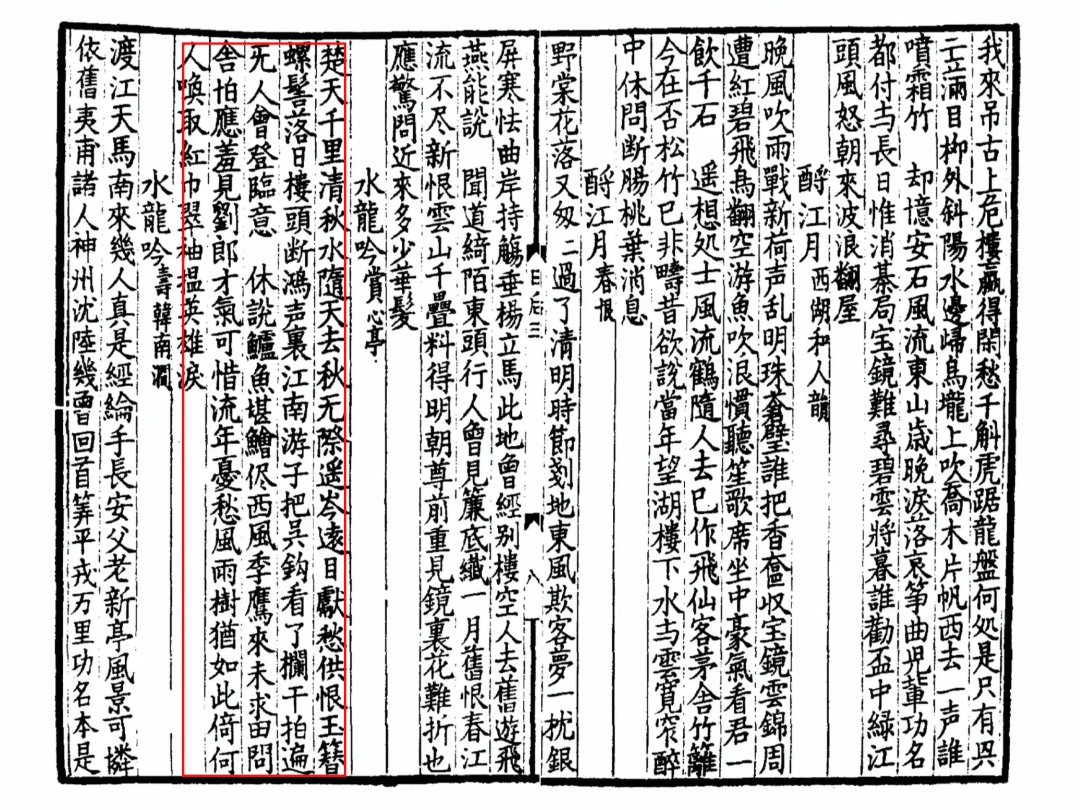 我來吊古上危樓贏得閑愁千斛虎踞龍盤何処是只有㒷
亡滿目栁外斜陽水邊歸鳥壠上吹喬木片帆西去一声誰
噴霜竹　却憶安石風流東山歲晚淚落哀筝曲児輩功名
都付与長日惟消棊局宝鏡難尋碧雲將暮誰勸盃中緑江
頭風怒朝來波浪翻屋
酹江月西湖和人韻
晚風吹雨戰新荷声乱明珠蒼璧誰把香奩収宝鏡雲錦周
遭紅碧飛鳥翻空游魚吹浪慣聽笙歌席坐中豪氣看君一
飲千石　遥想処士風流鶴隨人去已作飛仙客茅舎竹籬
今在否松竹已非疇昔欲說當年望湖樓下水与雲寛窄醉
中休問断腸桃葉消息
酹江月春恨
野棠花落又匆二過了清明時節刬地東風欺客夣一枕銀
屏寒怯曲岸持觴垂楊立馬此地曾經别樓空人去舊遊飛
燕能說　聞道綺陌東頭行人曾見簾底纖一月舊恨春江
流不尽新恨雲山千疊料得明朝尊前重見鏡裏花難折也
應驚問近來多少華髮
水龍吟賞心亭
楚天千里清秋水隨天去秋无際遥岑遠目獻愁供恨玉簪
螺髻落日樓頭断鴻声裏江南游子把吴鈎看了欄干拍遍
无人會登臨意　休說鱸魚堪鱠侭西風季鷹來未求田問
舎怕應羞見劉郎才氣可惜流年憂愁風雨樹猶如此倚何
人喚取紅巾翠袖揾英雄淚
水龍吟壽韓南澗
渡江天馬南來幾人真是經綸手長安父老新亭風景可憐
依舊夷甫諸人神州沈陸幾曾回首筭平戎万里功名本是